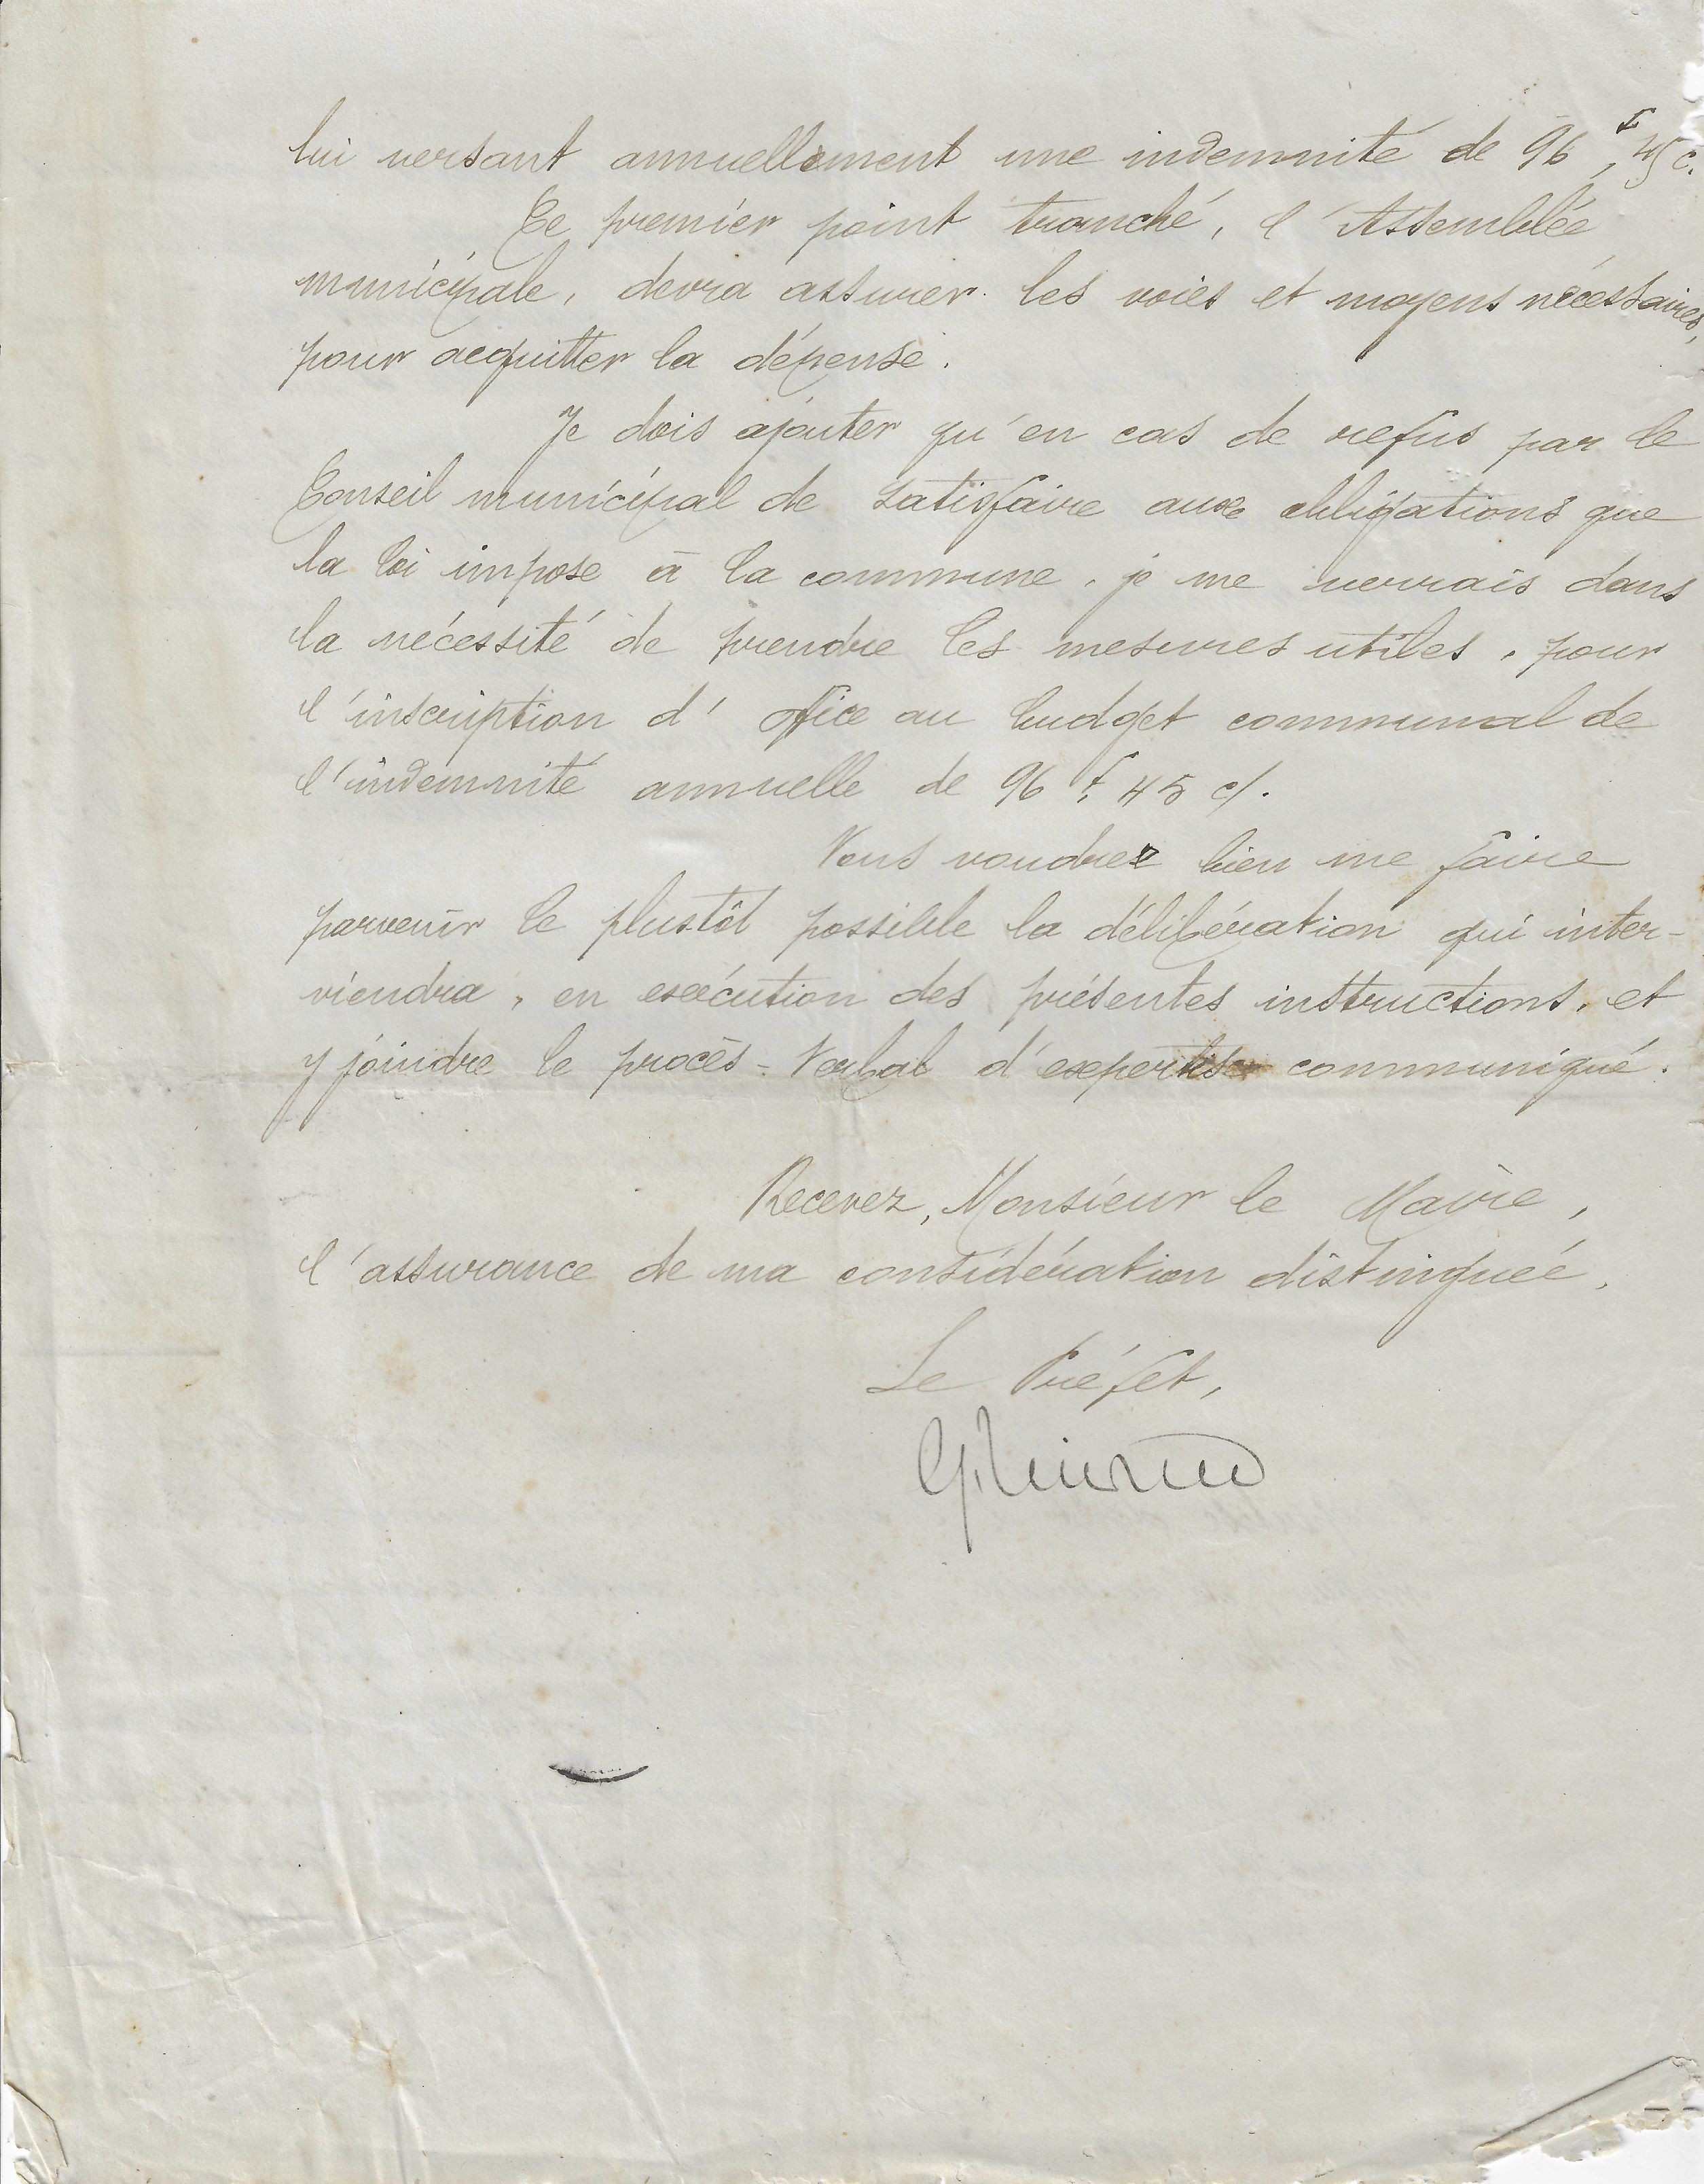 lui versant annuellement une indemnité de 96 f, 45 c.
Ce premier point tranché, l'Assemblée
municipale, devra assurer les voies et moyens nécessaires,
pour acquitter la dépense.
Je dois ajouter qu'en cas de refus par le
Conseil municipal de satisfaire aux obligations que
la loi impose à la commune, je me verrais dans
la nécessité de prendre les mesures utiles, pour
l'inscription d'office au budget communal de
l'indemnité annuelle de 96 f, 45 c/.
Vous voudrez bien me faire
parvenir le plustôt possible la délibération qui inter-
viendra, en exécution des présentes instructions, et
y joindre le procès-Verbal d'expertise communiqué.
Recevez, Monsieur le Maire,
l'assurance de ma considération distinguée.
Le Préfet,